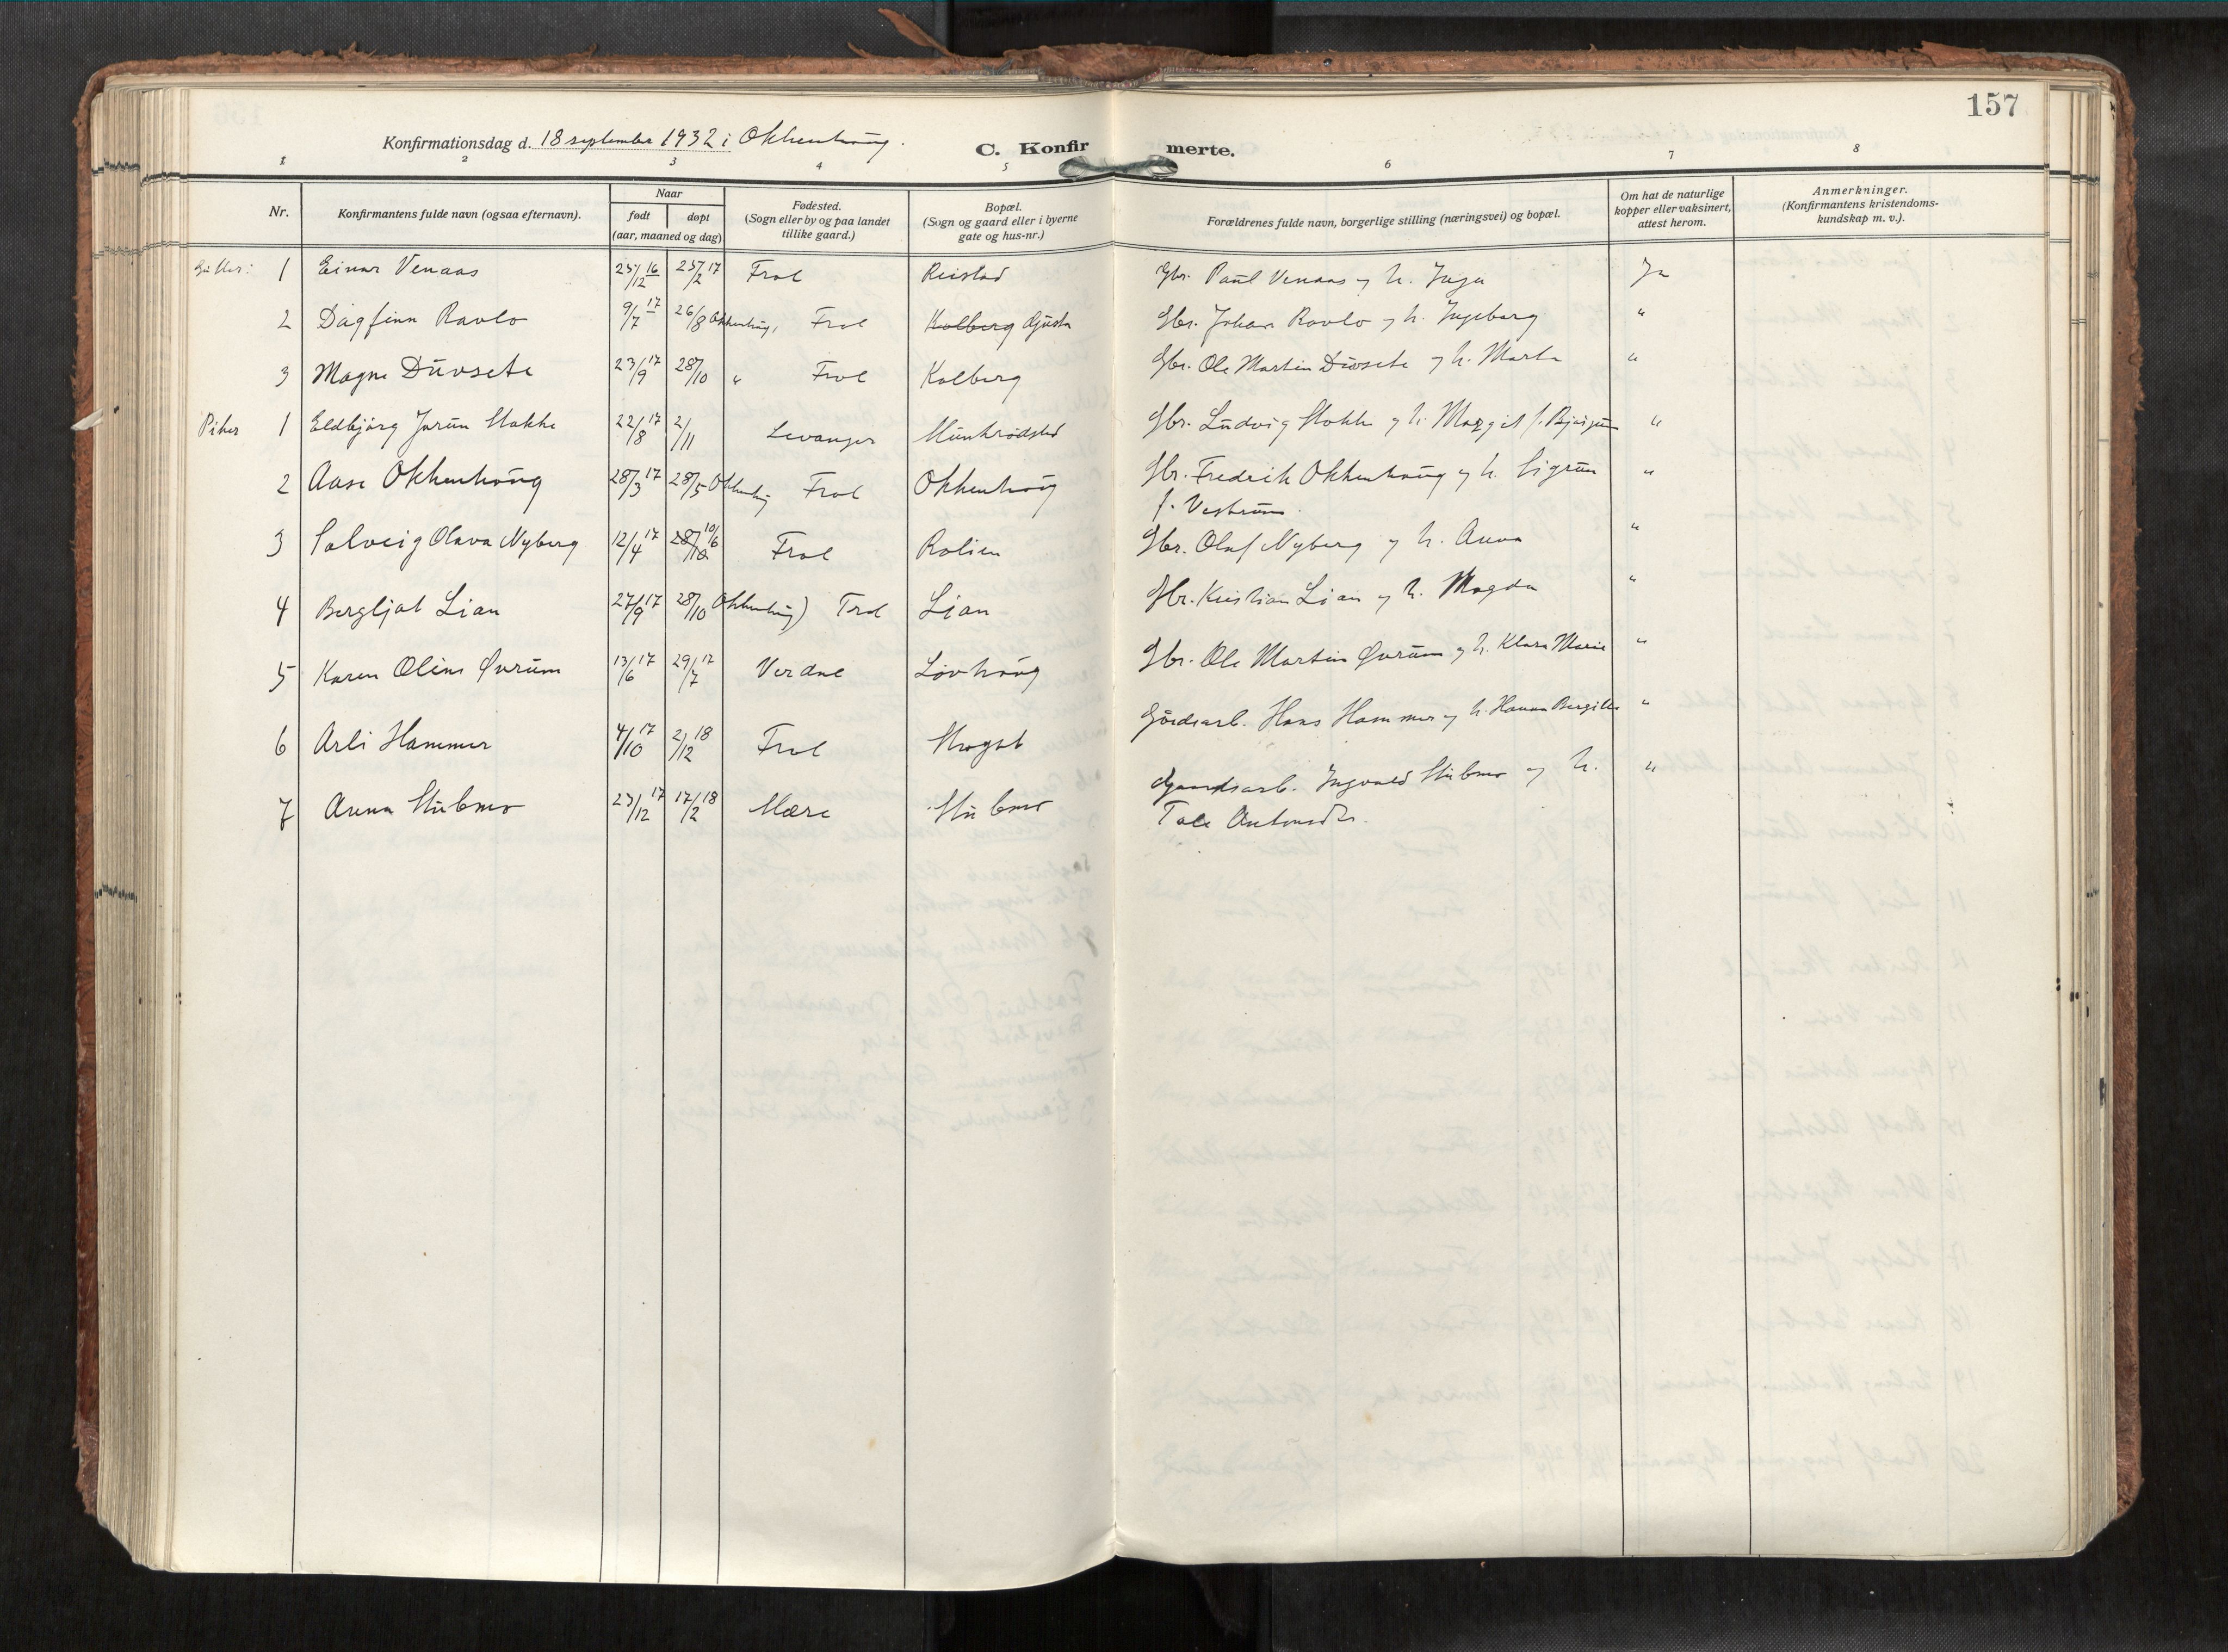 157
Konfirmationsdag d. 18 september 1932 i Okkenhaug.
C. Konfirmerte.
1 2 3 4 5 6 7 8
Nr.
Konfirmantens fulde navn (ogsaa efternavn).
Naar
født
døpt
(aar, maaned og dag)
Fødested.
(Sogn eller by og paa landet
tillike gaard.)
Bopæl.
(Sogn og gaard eller i byerne
gate og hus-nr.)
Forældrenes fulde navn, borgerlige stilling (næringsvei) og bopæl.
Om hat de naturlige
kopper eller vaksinert,
attest herom.
Anmerkninger.
(Konfirmantens kristendoms-
kundskap m. v.).
Gutter: 1 Einar Venaas 25/12 16 25/2 17 Frol Reistad Gbr. Paul Venaas og h. Inga Ja
2 Dagfinn Ravlo 9/7 17 26/8 Okkenhaug, Frol Kolberg Gjusta Gbr. Johan Ravlo og h. Ingeborg "
3 Magne Duvsete 23/9 17 28/10 " Frol Kolberg Gbr. Ole Martin Duvsete og h. Marta "
Piker 1 Eldbjørg Jorun Stokke 22/8 17 2/11 Levanger Munkrødstad Gbr. Ludvig Stokke og h. Margit f. "
2 Aase Okkenhaug 28/3 17 28/5 Okkenhaug Frol Okkenhaug Gbr. Fredrik Okkenhaug og h. Sigrun "
f. Vestrum.
3 Solveig Olava Nyberg 12/4 17 28/10 10/6 Frol Rolien Gbr. Olaf Nyberg og h. Anna "
4 Bergljot Lian 27/9 17 28/10 Okkenhaug) Frol Lian Gbr. Kristian Lian og h. Magda "
5 Karen Oline Øvrum 13/6 17 29/7 17 Verdal Løvhaug Gbr. Ole Martin Øvrum og h. Klara Marie "
6 Arli Hammer 4/10 17 2/12 18 Frol Skogset Gårdsarb. Hans Hammer og h. Hanna Bergitte "
7 Anna Stubmo 23/12 17 17/2 18 Mære Stubmo Gaardsarb. Ingvald Stubmo og h. "
Tale Antonsdtr.